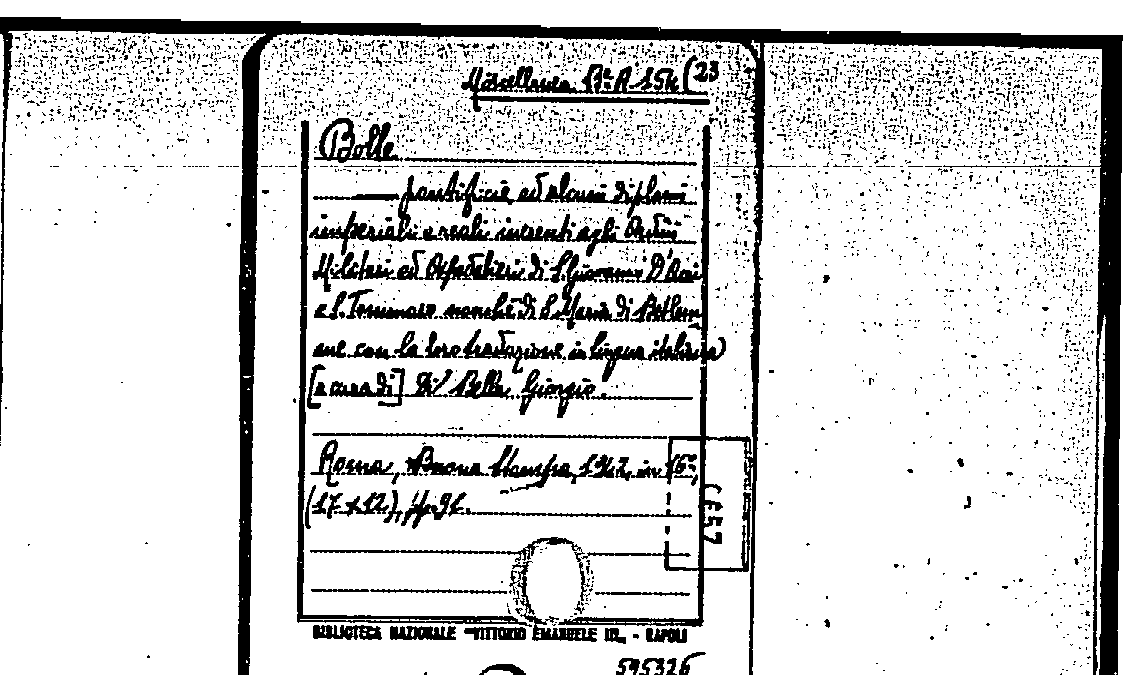 Miscellanea Bª A 154 (23
Bolle
pontificie ed alcuni diplomi
imperiali e reali inerenti agli Ordini
Militari ed Ospedalieri di S. Giovanni D'Acri
e S. Tommaso nonchè di S. Maria di Betlem
me con la loro traduzione in lingua italiana)
[a cura di] Di Bella Giorgio.
Roma, Buona Stampa, in 16º,
(17 x 12), pp. 91.
BIBLIOTECA NAZIONALE "VITTORIO EMANUELE III" - NAPOLI
595326